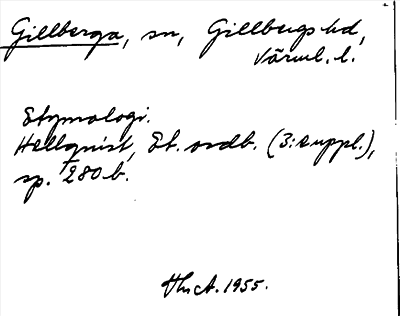 Gillberga, sn, Gillbergs hd,
Värml. l.
Etymologi.
Hellquist, Et. ordb. (3: suppl.),
sp. 1280 b.
1955.